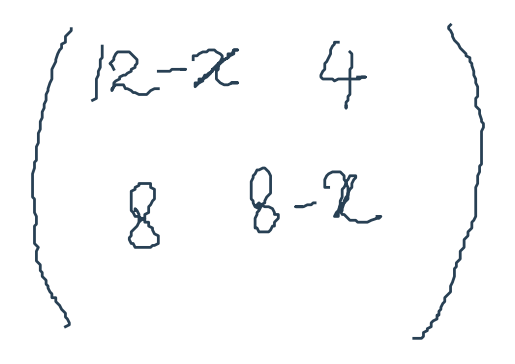 12-x 4
8 8-x